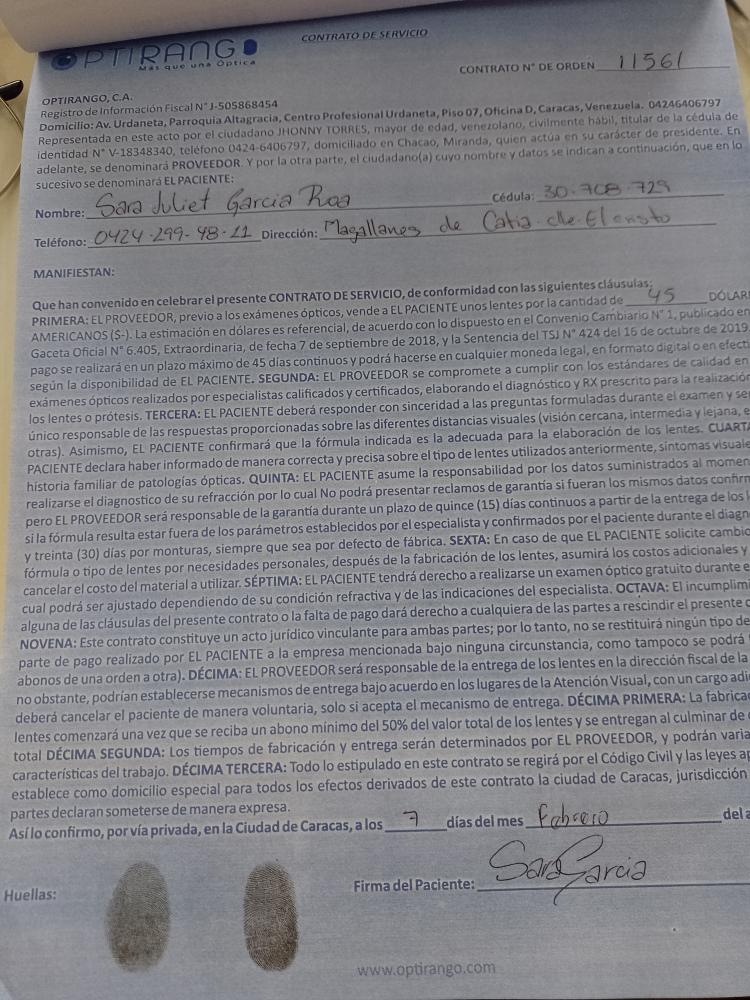 OPTIRANGO
Más que una Óptica
CONTRATO DE SERVICIO
CONTRATO N° DE ORDEN 11561
OPTIRANGO, C.A.
Registro de Información Fiscal N° J-505868454
Domicilio: Av. Urdaneta, Parroquia Altagracia, Centro Profesional Urdaneta, Piso 07, Oficina D, Caracas, Venezuela. 04246406797
Representada en este acto por el ciudadano JHONNY TORRES, mayor de edad, venezolano, civilmente hábil, titular de la cédula de
identidad N° V-18348340, teléfono 0424-6406797, domiciliado en Chacao, Miranda, quien actúa en su carácter de presidente. En
adelante, se denominará PROVEEDOR. Y por la otra parte, el ciudadano(a) cuyo nombre y datos se indican a continuación, que en lo
sucesivo se denominará EL PACIENTE:
Nombre: Sara Juliet Garcia Roa Cédula: 30.708.729
Teléfono: 0424-299-48-11 Dirección: Magallanes de Catia. clle. El cristo
MANIFIESTAN:
Que han convenido en celebrar el presente CONTRATO DE SERVICIO, de conformidad con las siguientes cláusulas:
PRIMERA: EL PROVEEDOR, previo a los exámenes ópticos, vende a EL PACIENTE unos lentes por la cantidad de 45 DÓLAR
AMERICANOS ($-). La estimación en dólares es referencial, de acuerdo con lo dispuesto en el Convenio Cambiario N° 1, publicado en
Gaceta Oficial N° 6.405, Extraordinaria, de fecha 7 de septiembre de 2018, y la Sentencia del TSJ N° 424 del 16 de octubre de 2019.
pago se realizará en un plazo máximo de 45 días continuos y podrá hacerse en cualquier moneda legal, en formato digital o en efecti
según la disponibilidad de EL PACIENTE. SEGUNDA: EL PROVEEDOR se compromete a cumplir con los estándares de calidad en
exámenes ópticos realizados por especialistas calificados y certificados, elaborando el diagnóstico y RX prescrito para la realización
los lentes o prótesis. TERCERA: EL PACIENTE deberá responder con sinceridad a las preguntas formuladas durante el examen y se
único responsable de las respuestas proporcionadas sobre las diferentes distancias visuales (visión cercana, intermedia y lejana, e
otras). Asimismo, EL PACIENTE confirmará que la fórmula indicada es la adecuada para la elaboración de los lentes. CUARTA
PACIENTE declara haber informado de manera correcta y precisa sobre el tipo de lentes utilizados anteriormente, síntomas visuale
historia familiar de patologías ópticas. QUINTA: EL PACIENTE asume la responsabilidad por los datos suministrados al momen
realizarse el diagnostico de su refracción por lo cual No podrá presentar reclamos de garantía si fueran los mismos datos confirm
pero EL PROVEEDOR será responsable de la garantía durante un plazo de quince (15) días continuos a partir de la entrega de los l
si la fórmula resulta estar fuera de los parámetros establecidos por el especialista y confirmados por el paciente durante el diagn
y treinta (30) días por monturas, siempre que sea por defecto de fábrica. SEXTA: En caso de que EL PACIENTE solicite cambio
fórmula o tipo de lentes por necesidades personales, después de la fabricación de los lentes, asumirá los costos adicionales y
cancelar el costo del material a utilizar. SÉPTIMA: EL PACIENTE tendrá derecho a realizarse un examen óptico gratuito durante e
cual podrá ser ajustado dependiendo de su condición refractiva y de las indicaciones del especialista. OCTAVA: El incumplimi
alguna de las cláusulas del presente contrato o la falta de pago dará derecho a cualquiera de las partes a rescindir el presente c
NOVENA: Este contrato constituye un acto jurídico vinculante para ambas partes; por lo tanto, no se restituirá ningún tipo de
parte de pago realizado por EL PACIENTE a la empresa mencionada bajo ninguna circunstancia, como tampoco se podrá
abonos de una orden a otra). DÉCIMA: EL PROVEEDOR será responsable de la entrega de los lentes en la dirección fiscal de la
no obstante, podrían establecerse mecanismos de entrega bajo acuerdo en los lugares de la Atención Visual, con un cargo adi
deberá cancelar el paciente de manera voluntaria, solo si acepta el mecanismo de entrega. DÉCIMA PRIMERA: La fabricac
lentes comenzará una vez que se reciba un abono mínimo del 50% del valor total de los lentes y se entregan al culminar de
total DÉCIMA SEGUNDA: Los tiempos de fabricación y entrega serán determinados por EL PROVEEDOR, y podrán varia
características del trabajo. DÉCIMA TERCERA: Todo lo estipulado en este contrato se regirá por el Código Civil y las leyes ap
establece como domicilio especial para todos los efectos derivados de este contrato la ciudad de Caracas, jurisdicción
partes declaran someterse de manera expresa.
Así lo confirmo, por vía privada, en la Ciudad de Caracas, a los 7 días del mes Febrero del a
Huellas:
Firma del Paciente: Sara Garcia
www.optirango.com